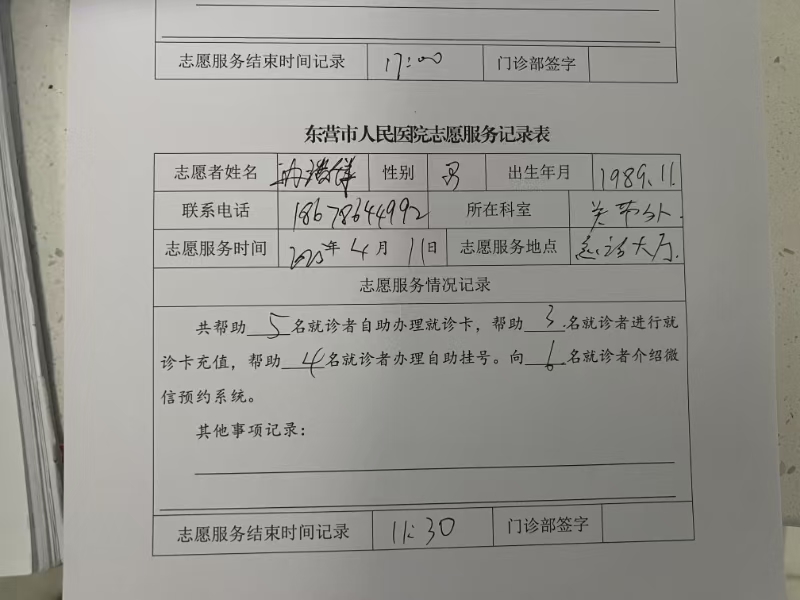 志愿服务结束时间记录 17:00 门诊部签字
东营市人民医院志愿服务记录表
志愿者姓名 性别 男 出生年月 1989.11.
联系电话 18678644992 所在科室 关节外.
志愿服务时间 2025年4月11日 志愿服务地点 急诊大厅.
志愿服务情况记录
共帮助5名就诊者自助办理就诊卡，帮助3名就诊者进行就
诊卡充值，帮助4名就诊者办理自助挂号。向6名就诊者介绍微
信预约系统。
其他事项记录：
志愿服务结束时间记录 11:30 门诊部签字